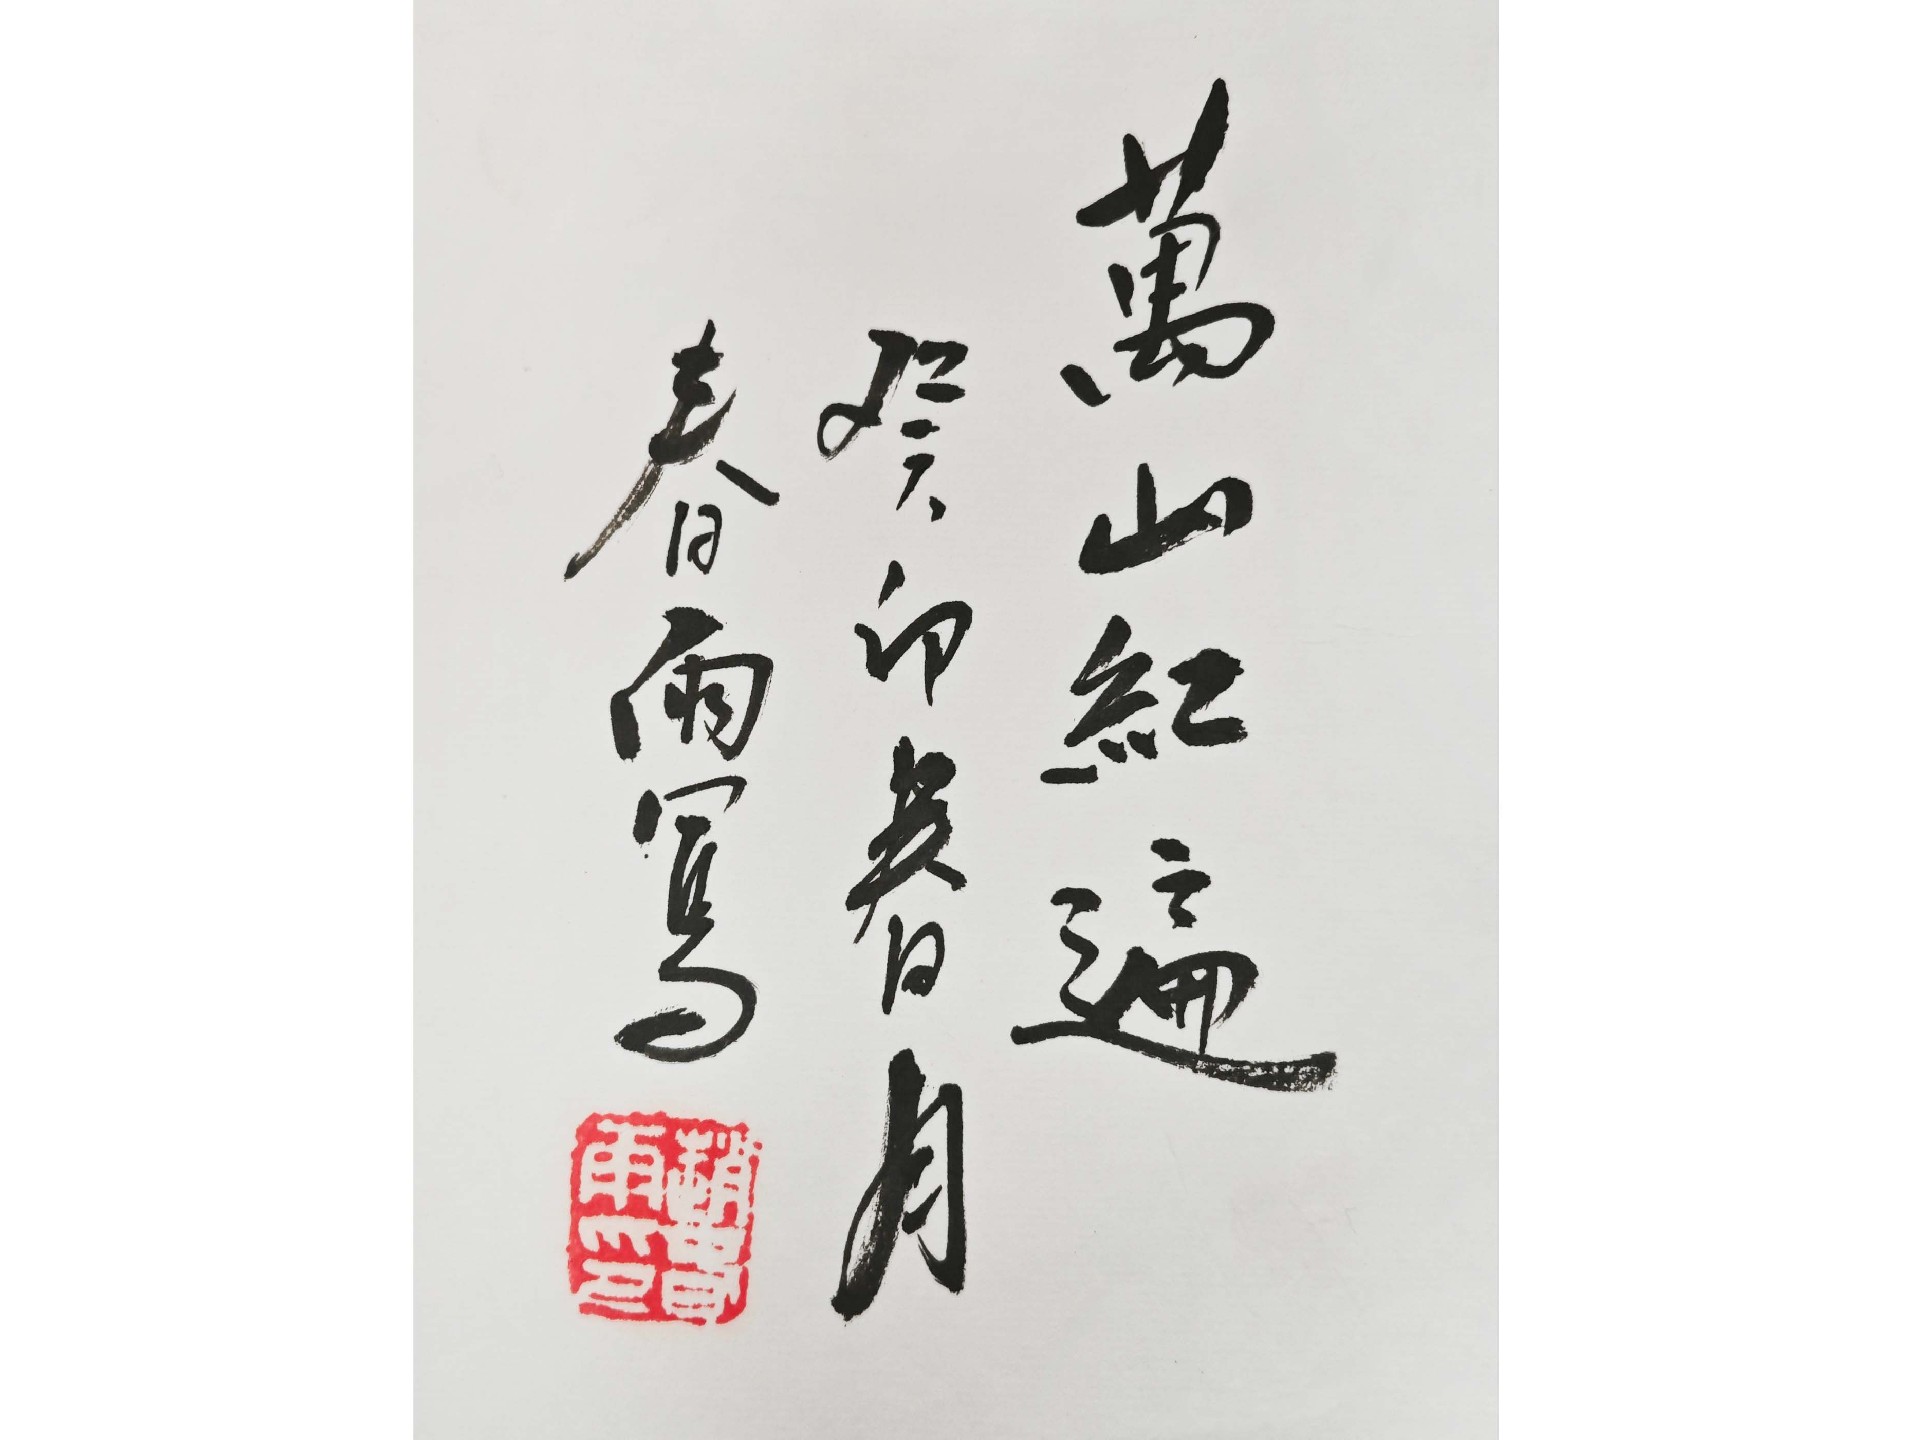 萬山紅遍
癸卯春月
春雨寫
趙春雨印